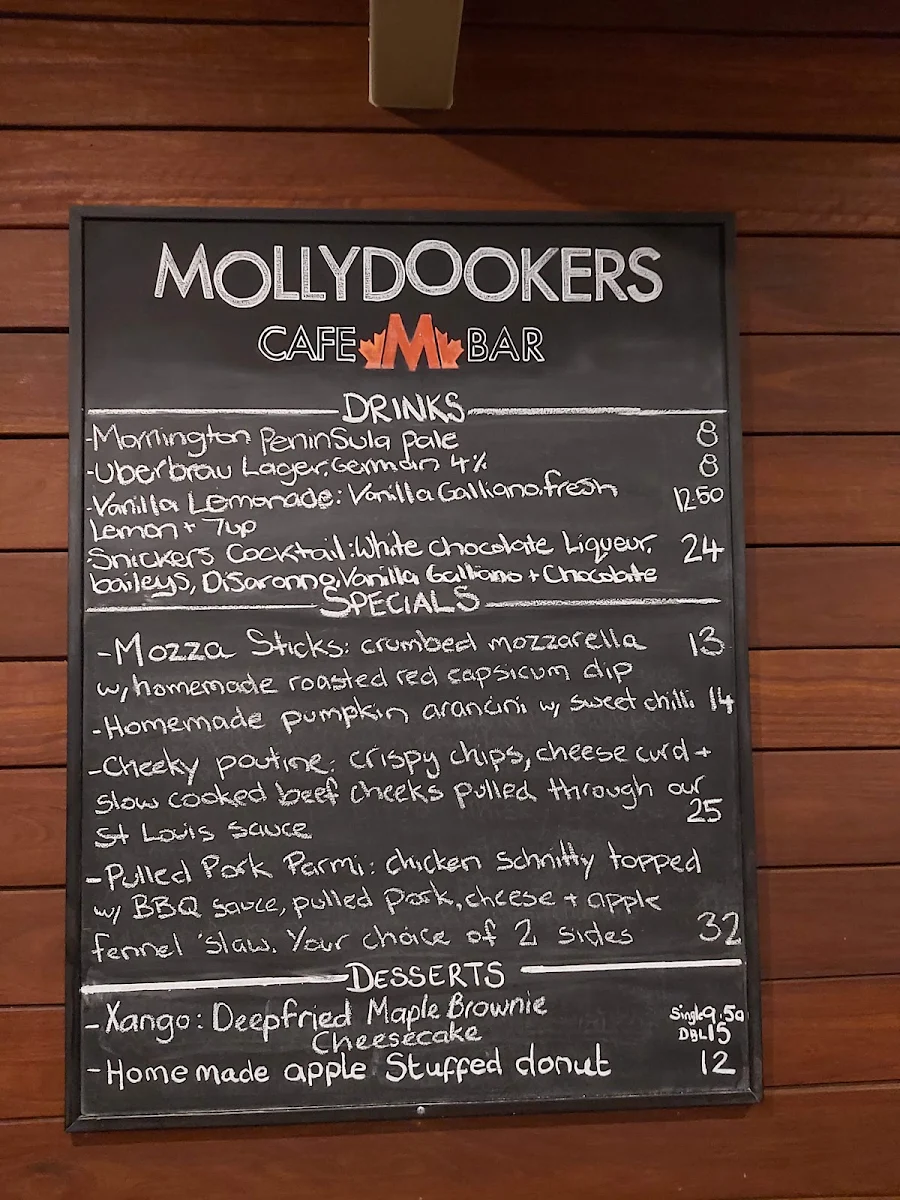 MOLLYDOOKERS
CAFE M BAR
DRINKS
-Mornington Peninsula pale 8
-Uberbrau Lager, German 4% 8
-Vanilla Lemonade: Vanilla Galliano, fresh 12.50
Lemon + 7up
Snickers Cocktail: White chocolate Liqueur, 24
baileys, DiSaronno, Vanilla Galliano + Chocolate
SPECIALS
-Mozza Sticks: crumbed mozzarella 13
w/ homemade roasted red capsicum dip
-Homemade pumpkin arancini w/ sweet chilli 14
-Cheeky poutine: crispy chips, cheese curd +
slow cooked beef cheeks pulled through our
St Louis sauce 25
-Pulled Pork Parmi: chicken schnitty topped
w/ BBQ sauce, pulled pork, cheese + apple
fennel 'slaw. Your choice of 2 sides 32
DESSERTS
-Xango: Deepfried Maple Brownie Single 9.50
Cheesecake DBL 15
-Homemade apple Stuffed donut 12